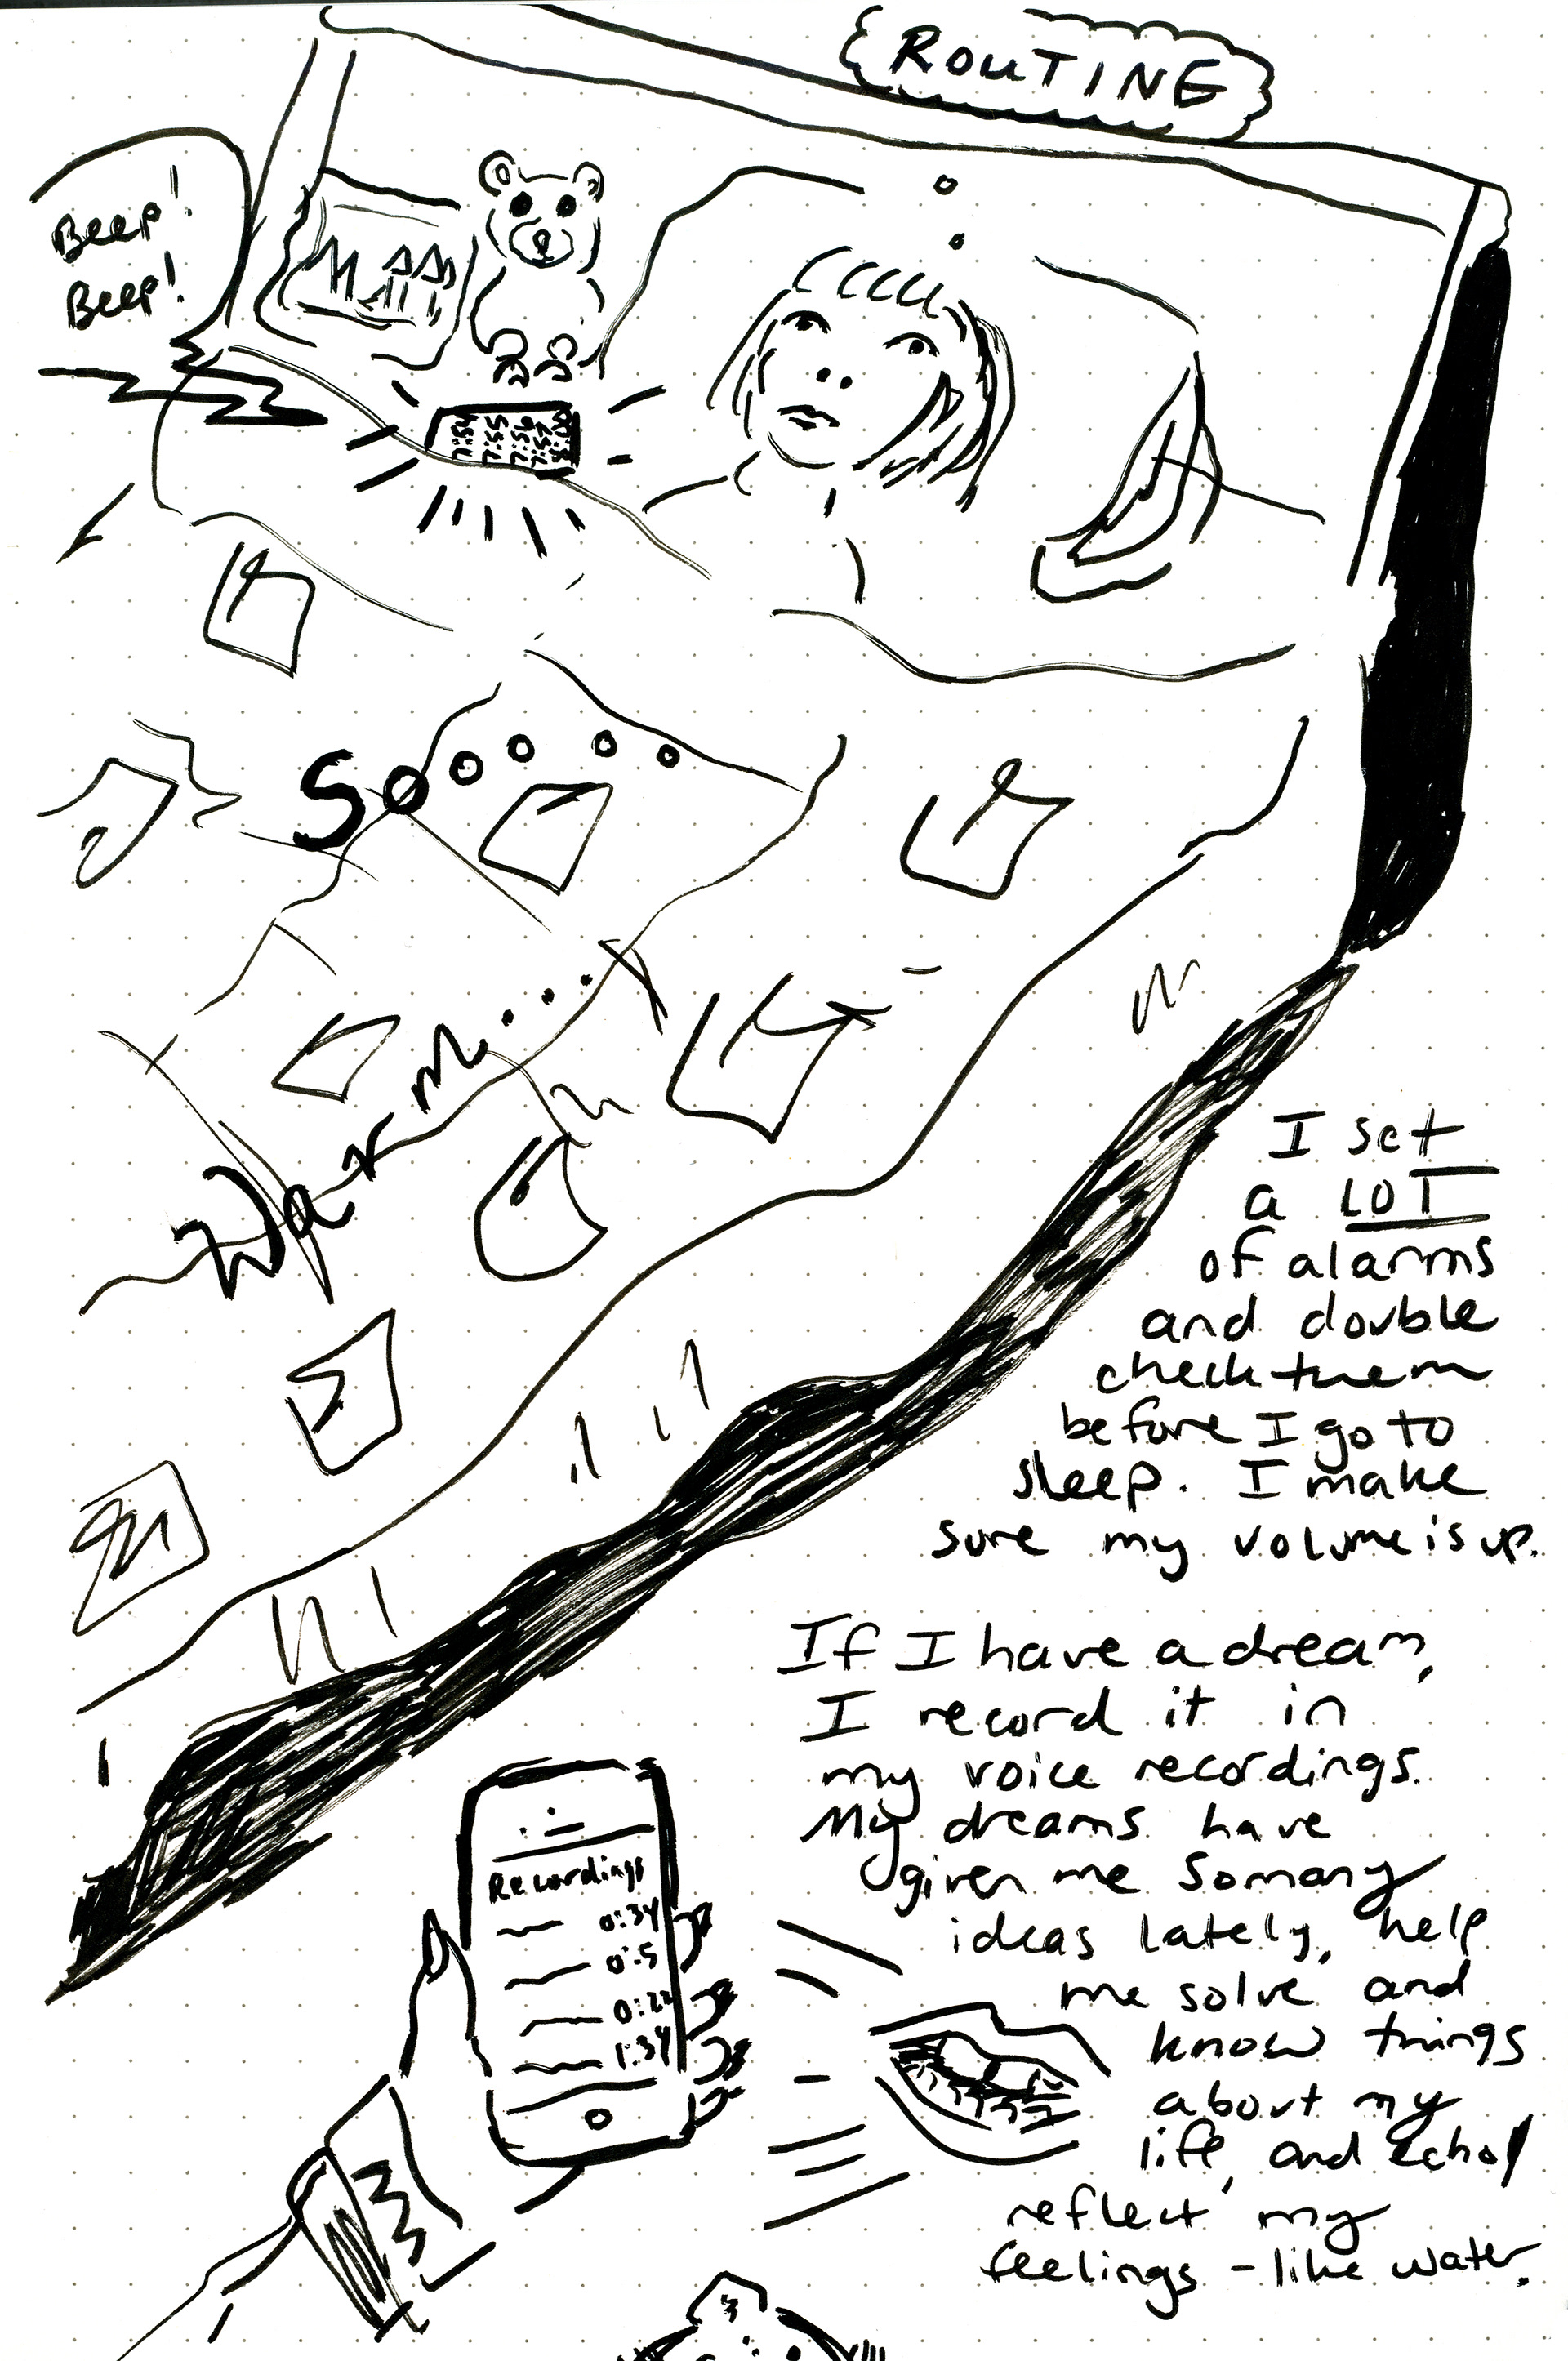 ROUTINE
Beep!
Beep!
7:54
7:55
7:56
7:57
8:00
Soooo
Warm...
I set
a LOT
of alarms
and double
check them
before I go to
sleep. I make
sure my volume is up.
If I have a dream,
I record it in
my voice recordings.
My dreams have
given me so many
ideas lately, help
me solve and
know things
about my
life, and echo/
reflect my
feelings - like water.
Recordings
0:34
0:5
0:22
1:34